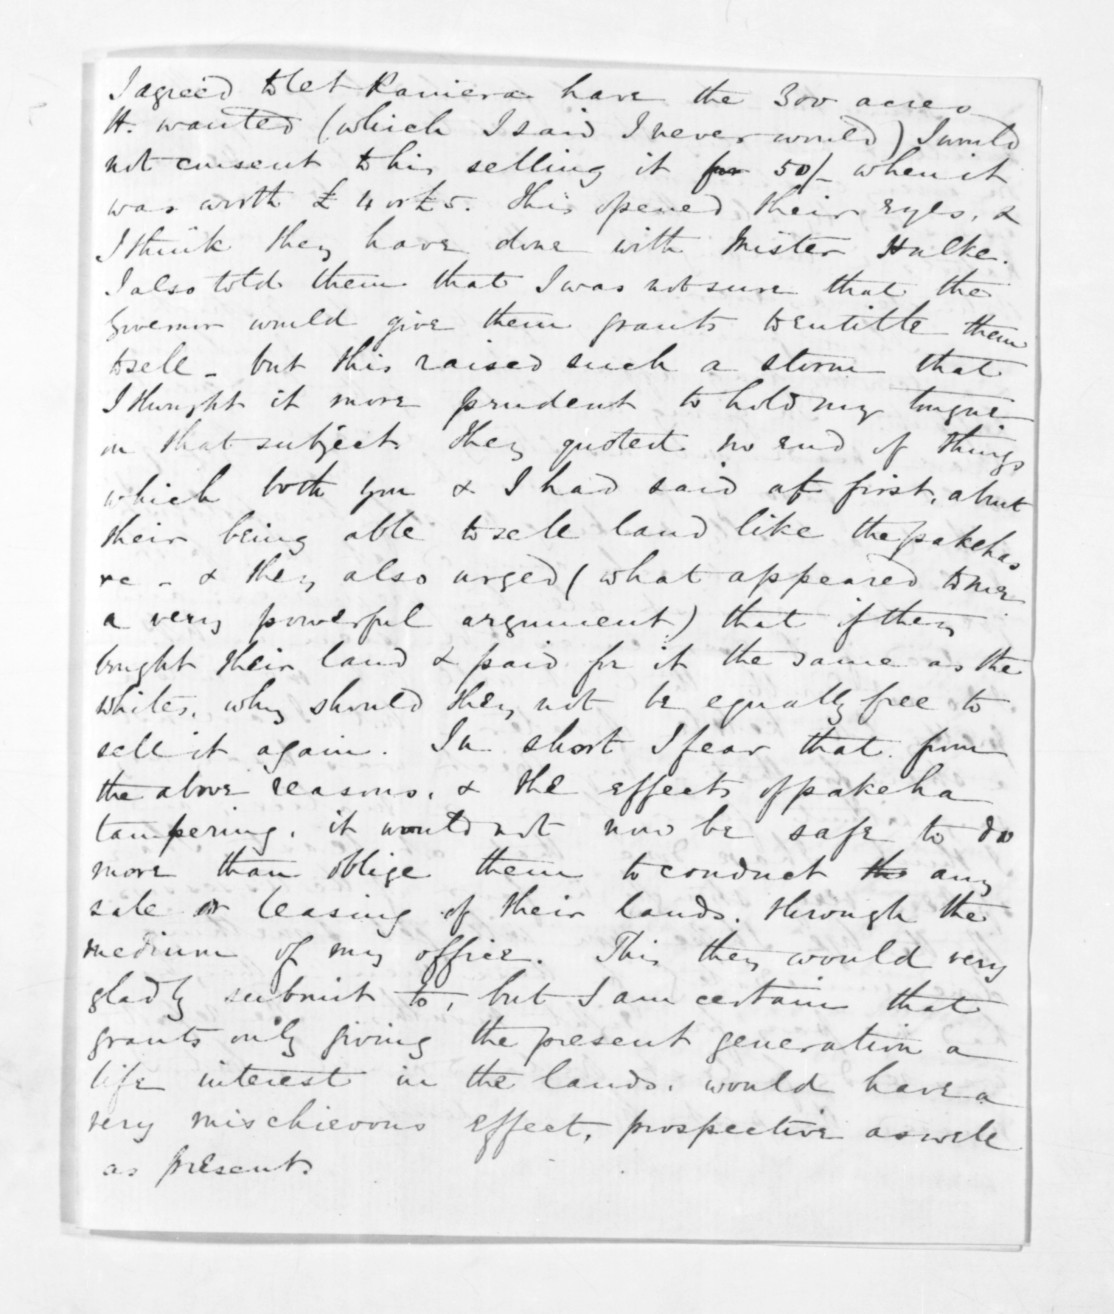 I agreed to let Raniera have the 300 acres
H. wanted (which I said I never would) I would
not consent to his selling it for 50/- when it
was worth £4 or £5. This opened their eyes, &
I think they have done with Mister Hulke.
I also told them that I was not sure that the
Governor would give them grants to entitle them
to sell - but this raised such a storm that
I thought it more prudent to hold my tongue
on that subject. They quoted no end of things
which both you & I had said at first, about
their being able to sell land like the pakehas
&c - & they also urged (what appeared to me
a very powerful argument) that if they
bought their land & paid for it the same as the
whites, why should they not be equally free to
sell it again. In short I fear that from
the above reasons, & the effects of pakeha
tampering, it would not now be safe to do
more than oblige them to conduct the any
sale or leasing of their lands, through the
medium of my office. This they would very
gladly submit to, but I am certain that
grants only giving the present generation a
life interest in the lands, would have a
very mischievous effect, prospective as well
as present.